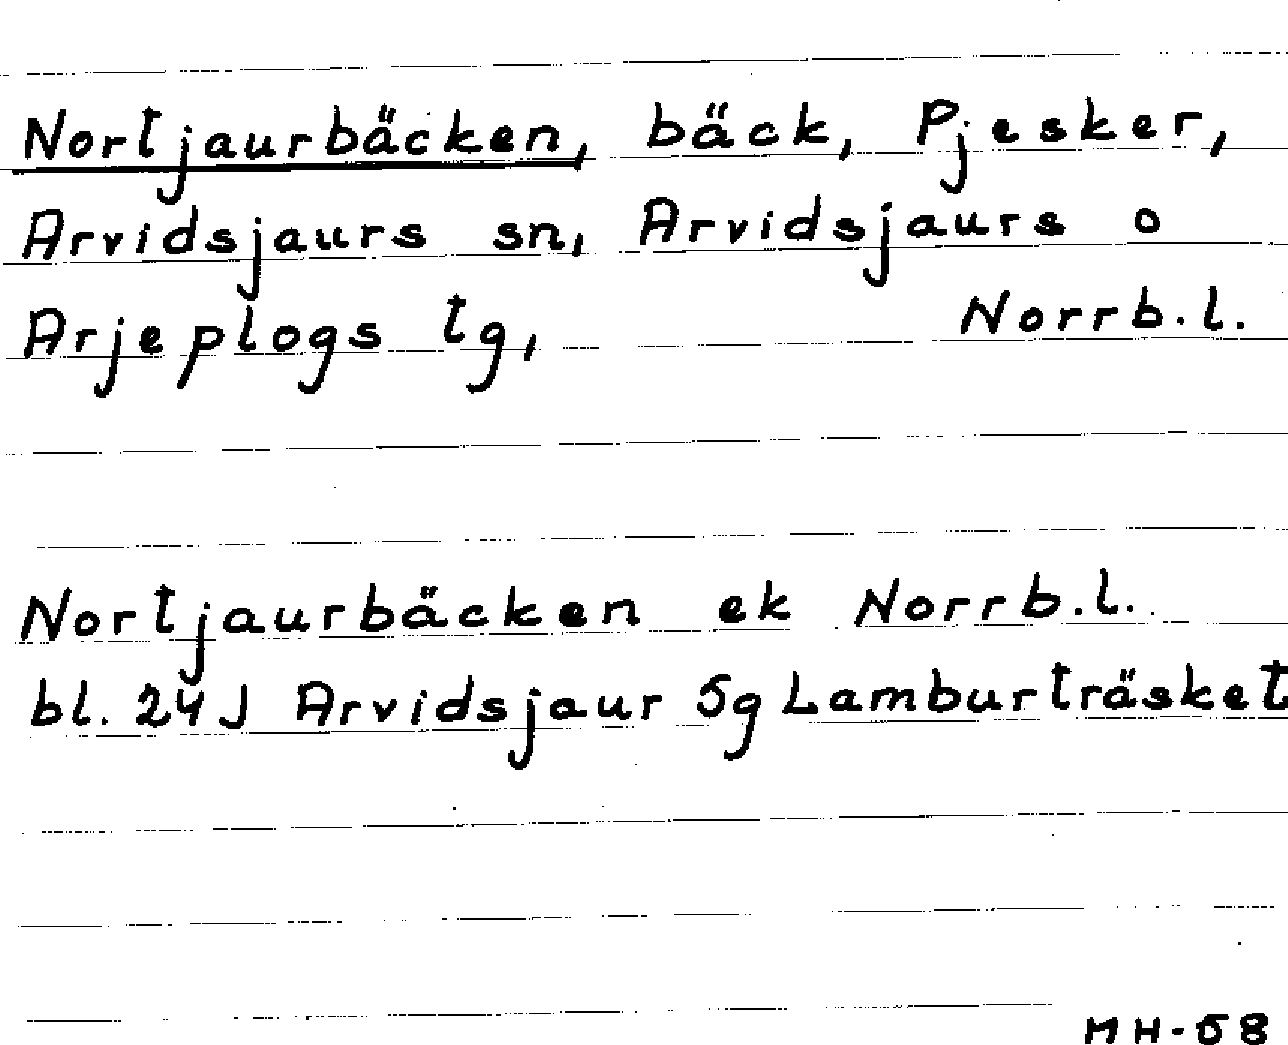 Nortjaurbäcken, bäck, Pjesker,
Arvidsjaurs sn, Arvidsjaurs o
Arjeplogs tg, Norrb.l.
Nortjaurbäcken ek Norrb.l.
bl. 24J Arvidsjaur 5g Lamburträsket
MH-58